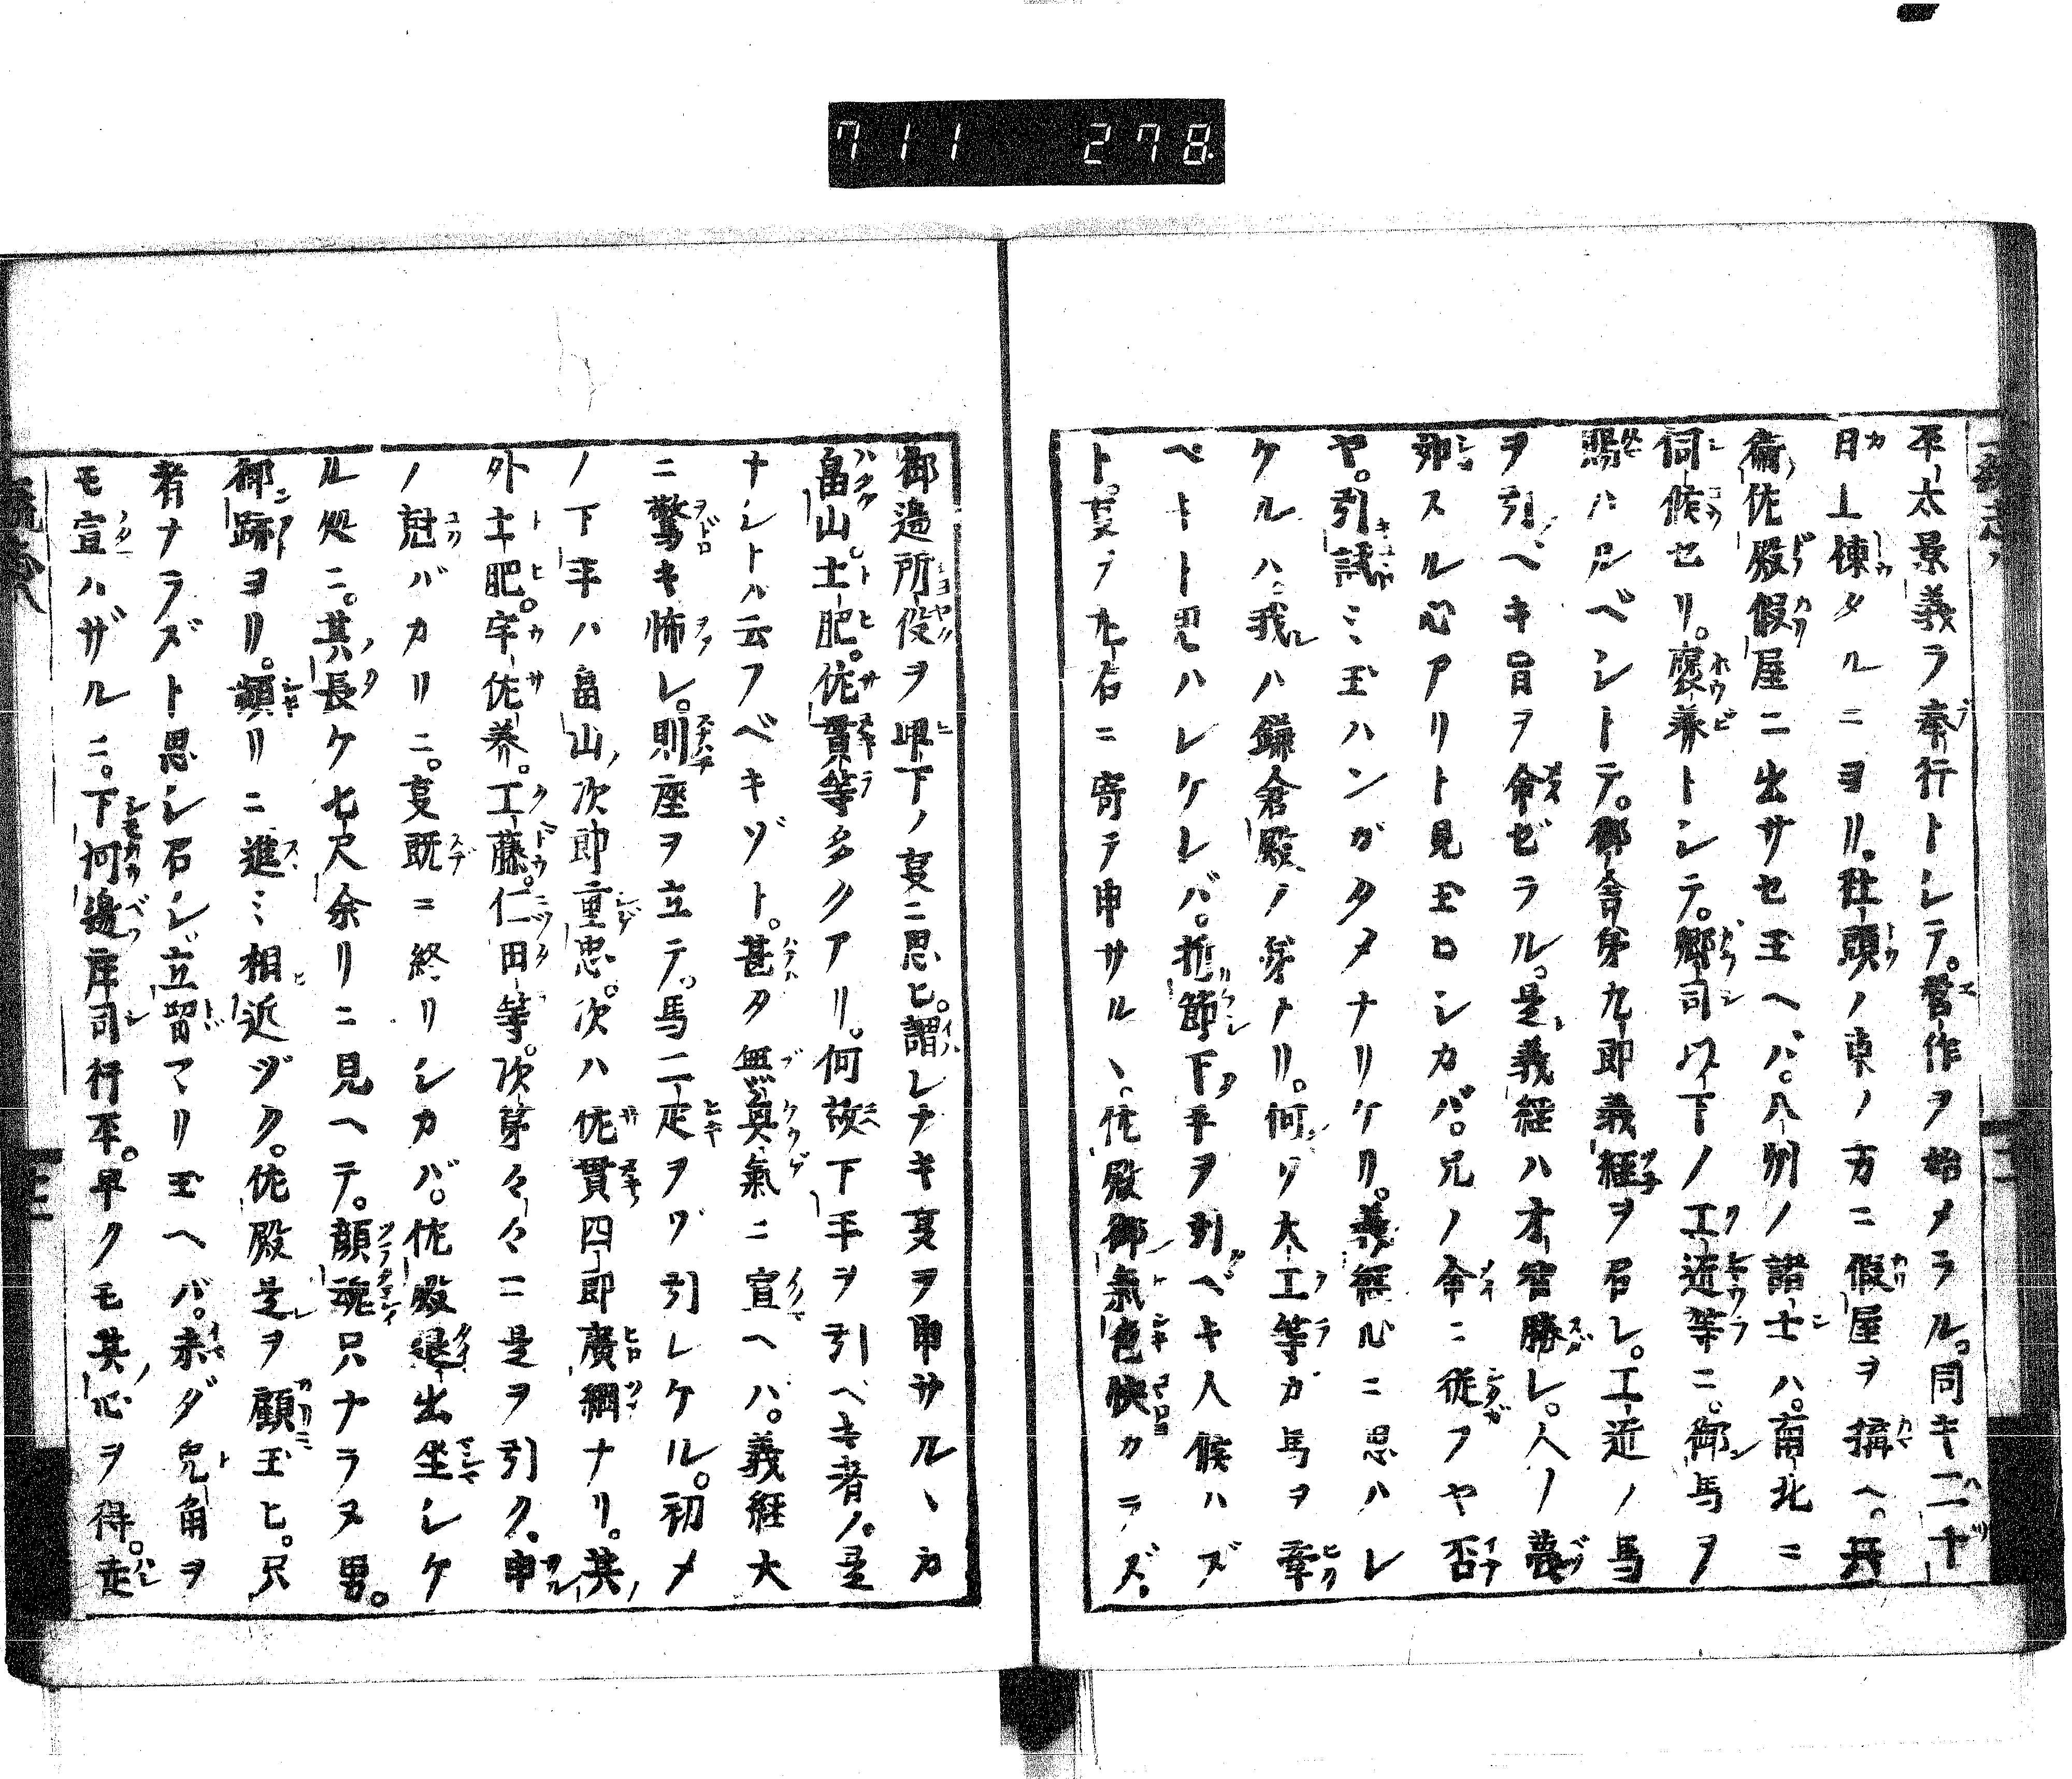 711 278
平太景義ラ奉行トシテ。営作ヲ始メラル。同キ二十
日上棟タルニヨリ。社頭ノ東ノ方ニ假屋ヲ搆ヘ。兵
衞佐殿假屋ニ出サセ玉ヘバ。八州ノ諸士ハ。南北ニ
伺候セリ。褒美トシテ。郷司以下ノ工近等ニ。御馬ヲ
賜ハルベシトテ。御舎弟九郎義経ヲ召レ。工近ノ馬
ヲ引ベキ旨ヲ命ゼラル。是義経ハ才智勝レ。人ノ
スル心アリト見玉ロシカバ。兄ノ命ニ従フヤ否
ヤ。引試ミ玉ハンガタメナリケリ。義経心ニ思ハレ
ケルハ。我ハ鎌倉殿ノ弟トリ。何ゾ大工等ガ馬ヲ牽
ベキト思ハレケレバ。折節下手ヲ引ベキ人候ハズ
ト。叓ヲ左右ニ寄テ申サル丶。佐殿御氣色快カラズ。
御邉所役ヲ卑下ノ叓ニ思ヒ。謂レナキ叓ヲ申サル丶カ
畠山。土肥。佐貫等多クアリ。何故下手ヲ引ベキ者ノ。是
ナシトハ云フベキゾト。甚タ無興氣ニ宣ヘハ。義経大
ニ驚キ怖レ。則座ヲ立テ。馬二疋ヲゾ引レケル。初メ
ノ下手ハ畠山次郎重忠。次ハ佐貫四郎廣綱ナリ。其
外土肥。宇佐美。工藤。仁田等。次第々々ニ是ヲ引ク。申
ノ尅バカリニ。叓既ニ終リシカバ。佐殿退出坐シケ
ル処ニ。其長ケ七尺余リニ見ヘテ。顔魂只ナラヌ男。
御跡ヨリ。頻リニ進ミ相近ヅク。佐殿是ヲ顧玉ヒ。只
者ナラズト思シ石シ。立留マリ玉ヘバ。未ダ兎角ヲ
モ宣ハザルニ。下河邉庄司行平。早クモ其心ヲ得。走